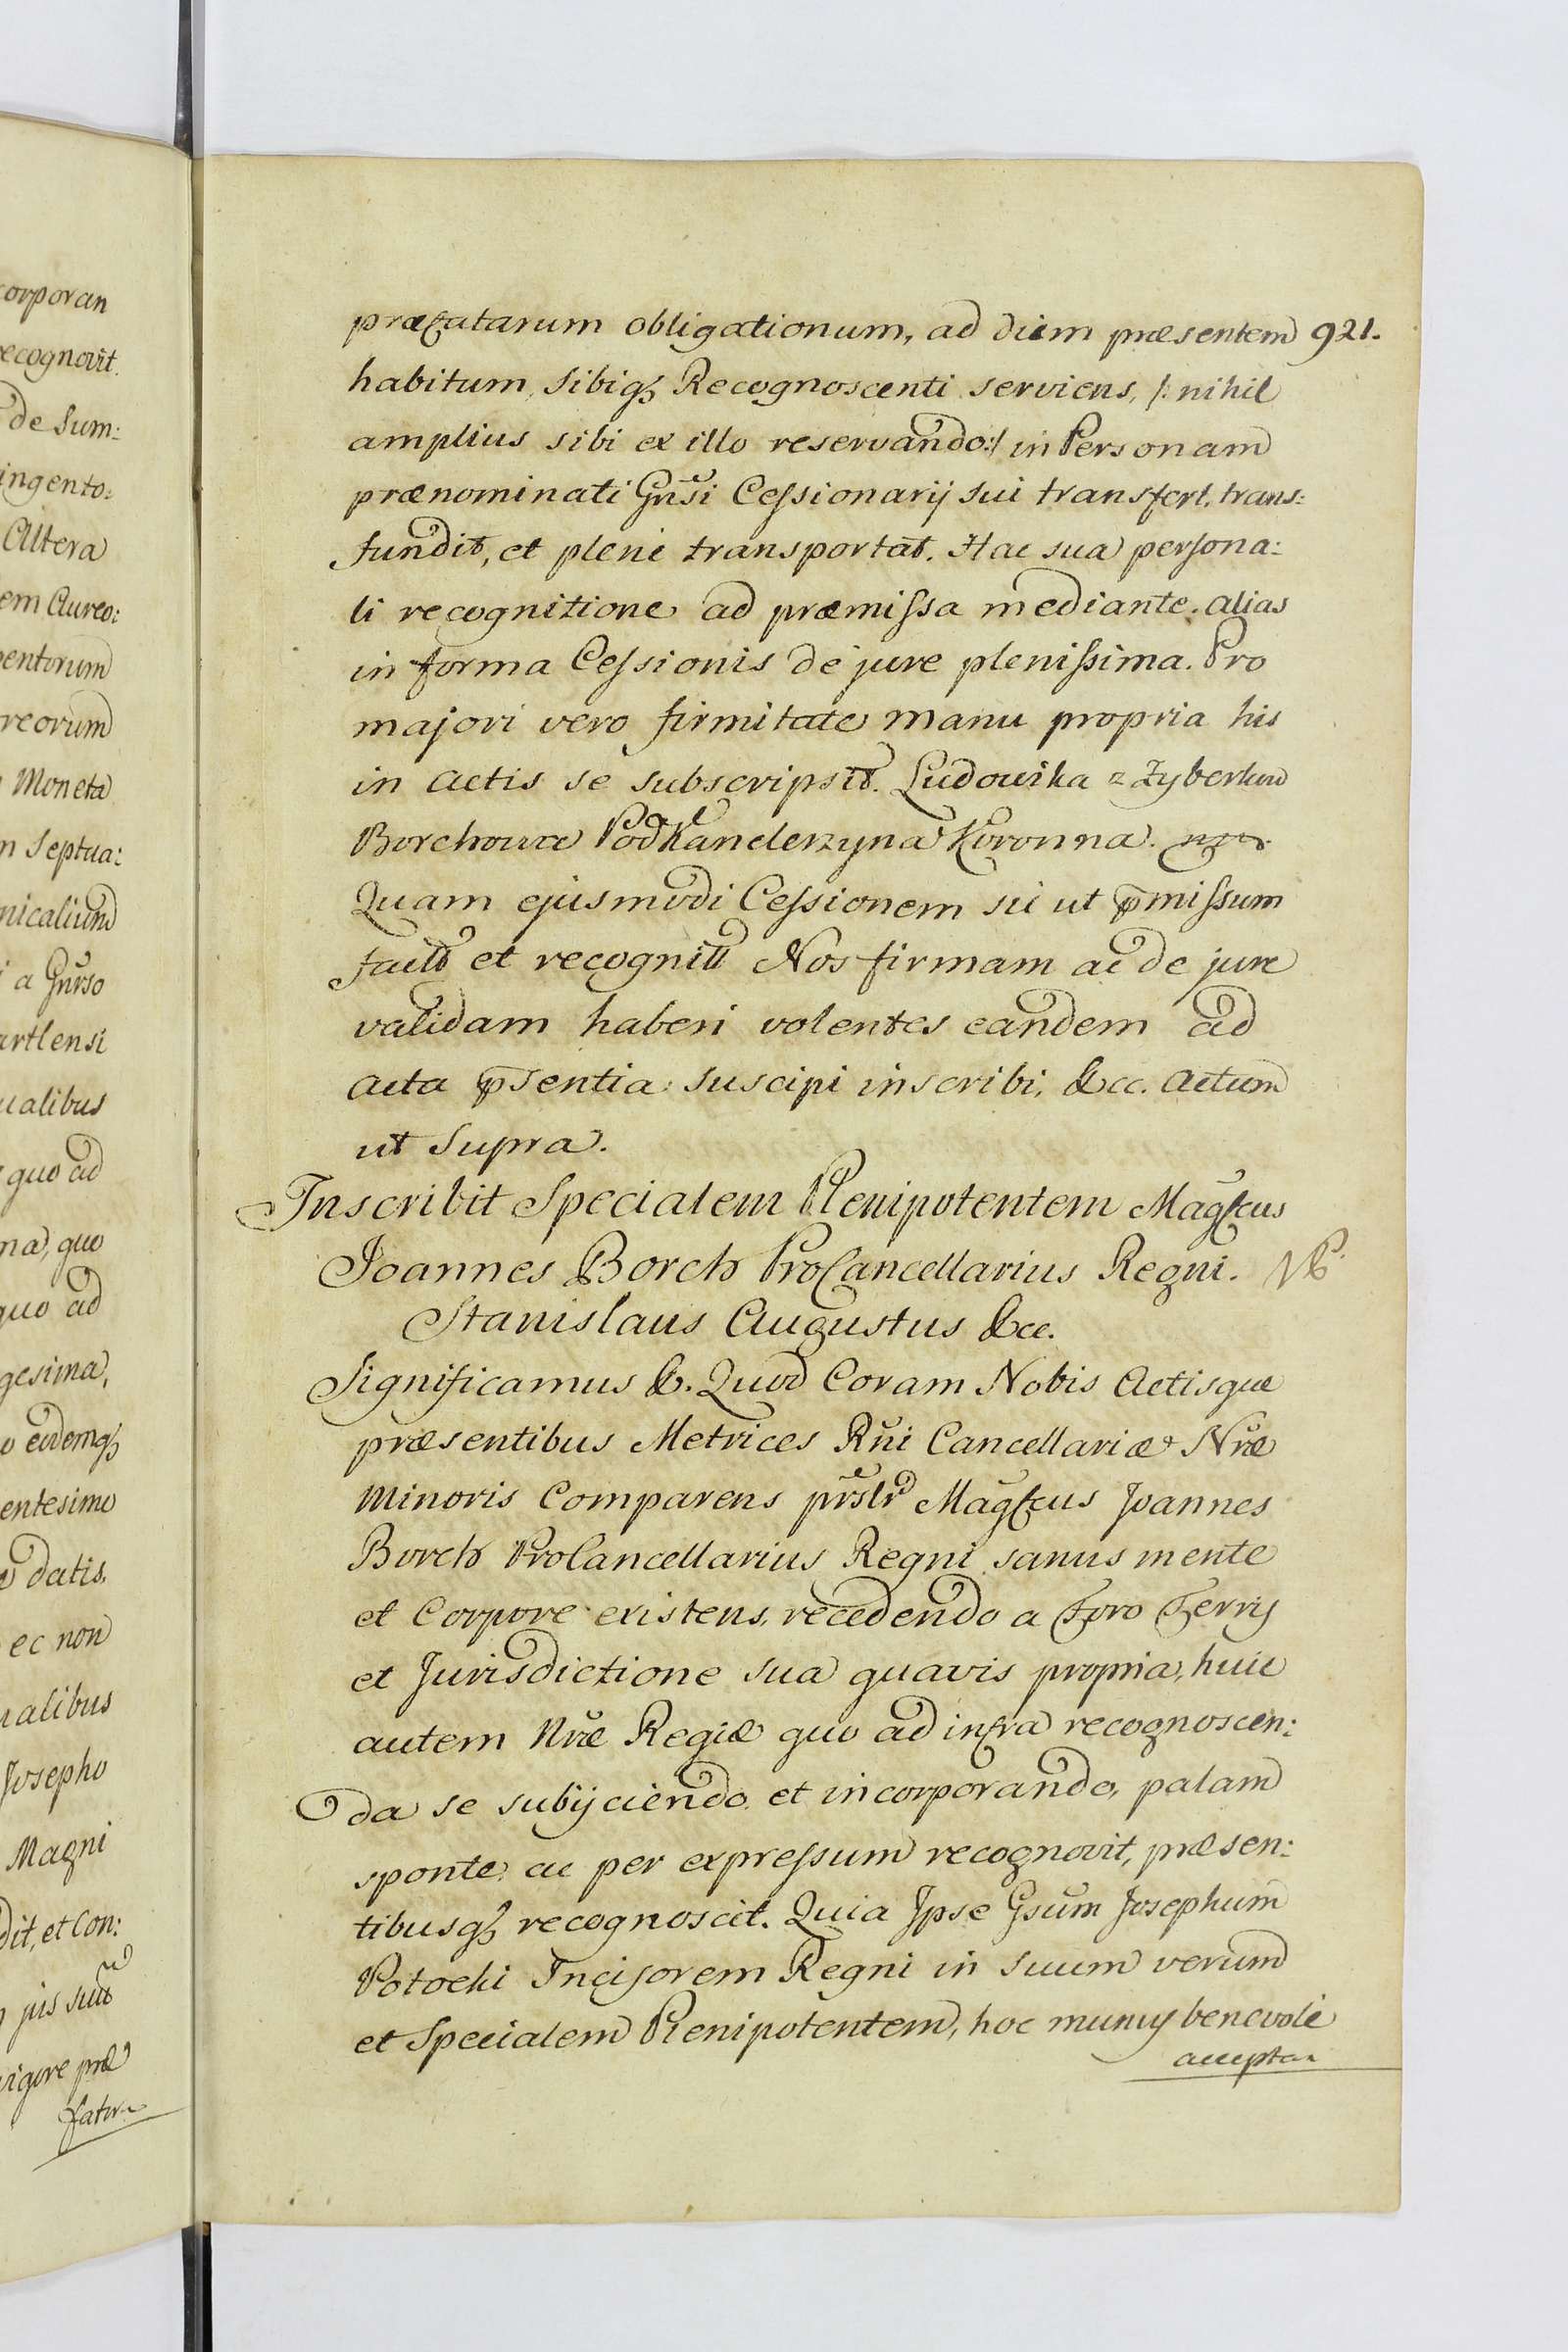 corporan
recognovit.
de Sum:
ingento:
Altera
em Aureo:
entorum
reorum
Moneta
m Septua:
nicalium
i a Gnrso
artlensi
ualibus
quo ad
na, quo
quo ad
gesima,
o eodemqꝫ
entesimo
datis,
ec non
ralibus
Josepho
Magni
dit, et Con:
jus suu
vigore præ
fatar
præfatarum obligationum, ad diem præsentem 921.
habitum, sibiqꝫ Recognoscenti serviens, /: nihil
amplius sibi ex illo reservando :/ in Personam
prænominati Gnsi Cessionarij sui transfert, trans:
fundit, et plene transportat. Hac sua persona:
li recognitione ad præmissa mediante. alias
in forma Cessionis de jure plenissima. Pro
majori vero firmitate manu propria his
in Actis se subscripsit. Ludowika z Zyberkow
Borchowa Podkanclerzyna Koronna.
Quam ejusmodi Cessionem sic ut p̄missum
fact et recognit Nos firmam ac de jure
validam haberi volentes eandem ad
acta p̄sentia suscipi inscribi, &cc. Actum
ut Supra.
Inscribit Specialem Plenipotentem Magfcus
Joannes Borch ProCancellarius Regni. NB.
Stanislaus Augustus &cc.
Significamus &. Quod Coram Nobis Actisque
præsentibus Metrices Rni Cancellariæ Nræ
Minoris Comparens prslr Magfcus Joannes
Borch ProCancellarius Regni sanus mente
et Corpore existens, recedendo a Foro Terrij
et Jurisdictione sua quavis propria, huic
autem Nræ Regiæ quo ad infra recognoscen:
da se subijciendo et incorporando, palam
sponte, ac per expressum recognovit, præsen:
tibusqꝫ recognoscit. Quia Ipse Gsum Josephum
Potocki Incisorem Regni in suum verum
et Specialem Plenipotentem, hoc munus benevole
acceptan